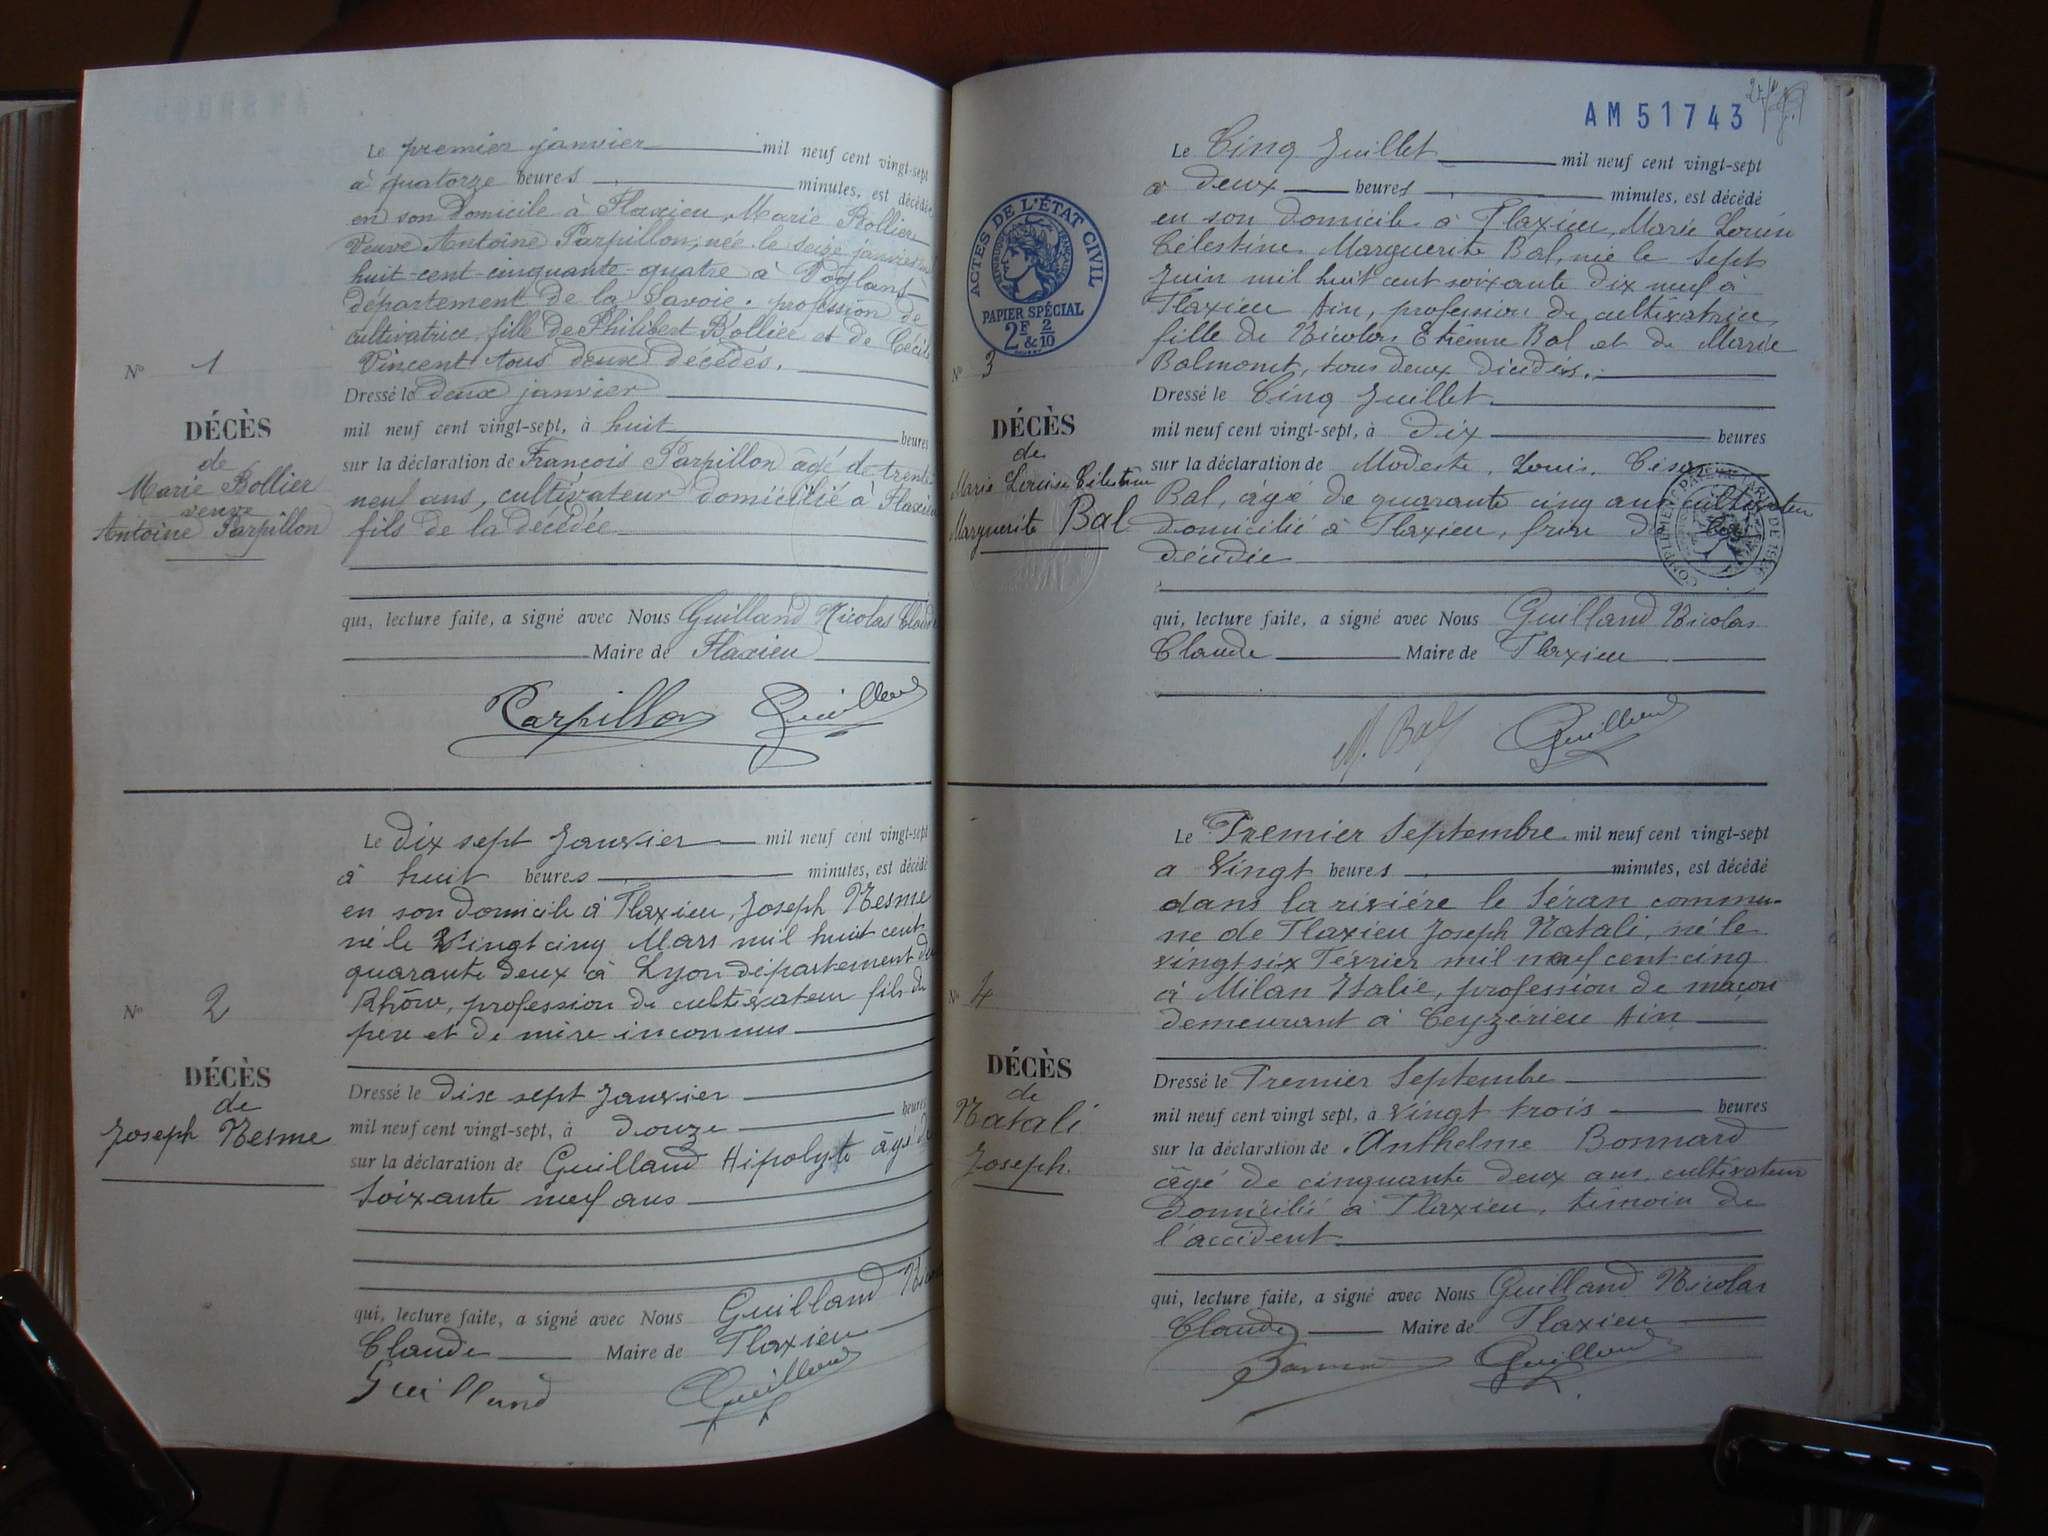 Le premier janvier mil neuf cent vingt-sept
à quatorze heures minutes, est décédée
en son domicile à Flaxieu, Marie Bollier
Veuve Antoine Parpillon, née le seize janvier mil
huit-cent-cinquante-quatre à
département de la Savoie. profession de
cultivatrice, fille de Philibert Bollier et de Cécile
Vincent tous deux décédés.
Nº 1
DÉCÈS
de
Marie Bollier
veuve
Antoine Parpillon
Dressé le deux janvier
mil neuf cent vingt-sept, à huit heures
sur la déclaration de François Parpillon âgé de trente
neuf ans, cultivateur domicilié à Flaxieu
fils de la décédée
qui, lecture faite, a signé avec Nous Guilland Nicolas Claude
Maire de Flaxieu
Parpillon Guilland
Le dix sept Janvier mil neuf cent vingt-sept
à huit heures minutes, est décédé
en son domicile à Flaxieu, Joseph Nesme
né le Vingt cinq Mars mil huit cent
quarante deux à Lyon département du
Rhône, profession de cultivateur fils de
père et de mère inconnus
Nº 2
DÉCÈS
de
Joseph Nesme
Dressé le dix sept Janvier
mil neuf cent vingt-sept, à douze heures
sur la déclaration de Guilland Hipolyte âgé de
soixante neuf ans
qui, lecture faite, a signé avec Nous Guilland Nicolas
Claude Maire de Flaxieu
Guilland Guilland
AM51743
Le Cinq Juillet mil neuf cent vingt-sept
a deux heures minutes, est décédé
en son domicile à Flaxieu, Marie Louise
Célestine Marguerite Bal, née le Sept
Juin mil huit cent soixante dix neuf à
Flaxieu Ain, profession de cultivatrice,
fille de Nicolas Etienne Bal et de Marie
Balmont, tous deux décédés.
ACTES DE L'ÉTAT CIVIL
PAPIER SPÉCIAL
2F & 2/10
Nº 3
DÉCÈS
de
Marie Louise Célestine
Marguerite Bal
Dressé le Cinq Juillet
mil neuf cent vingt-sept, à Dix heures
sur la déclaration de Modeste, Louis,
Bal, âgé de quarante cinq ans cultivateur
domicilié à Flaxieu, frère de la
décédée
qui, lecture faite, a signé avec Nous Guilland Nicolas
Claude Maire de Flaxieu
M. Bal Guilland
Le Premier Septembre mil neuf cent vingt-sept
a Vingt heures minutes, est décédé
dans la rivière le Séran commu-
ne de Flaxieu Joseph Natali, né le
vingt six Février mil neuf cent cinq
à Milan Italie, profession de maçon
demeurant à Ceyzerieu Ain
Nº 4
DÉCÈS
de
Natali
Joseph.
Dressé le Premier Septembre
mil neuf cent vingt sept, à vingt trois heures
sur la déclaration de Anthelme Bonnard
âgé de cinquante deux ans, cultivateur
domicilié à Flaxieu, témoin de
l'accident
qui, lecture faite, a signé avec Nous Guilland Nicolas
Claude Maire de Flaxieu
Guilland